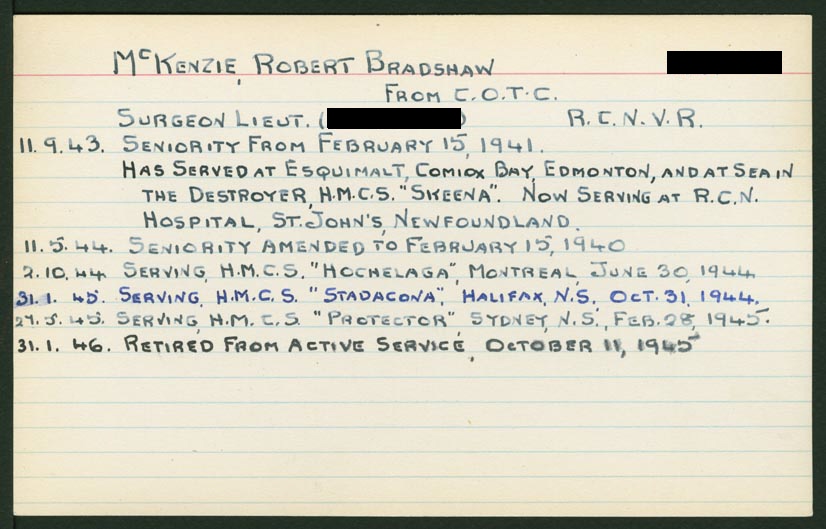 McKENZIE, ROBERT BRADSHAW
FROM C.O.T.C.
SURGEON LIEUT. ( ) R.C.N.V.R.
11.9.43. SENIORITY FROM FEBRUARY 15, 1941.
HAS SERVED AT ESQUIMALT, COMIOX BAY, EDMONTON, AND AT SEA IN
THE DESTROYER, H.M.C.S. "SKEENA". NOW SERVING AT R.C.N.
HOSPITAL, ST. JOHN'S, NEWFOUNDLAND.
11.5.44. SENIORITY AMENDED TO FEBRUARY 15, 1940
2.10.44. SERVING, H.M.C.S. "HOCHELAGA", MONTREAL, JUNE 30, 1944
31.1.45. SERVING, H.M.C.S. "STADACONA", HALIFAX, N.S., OCT. 31, 1944.
SERVING, H.M.C.S. "PROTECTOR" SYDNEY, N.S., FEB. 28, 1945.
31.1.46. RETIRED FROM ACTIVE SERVICE, OCTOBER 11, 1945